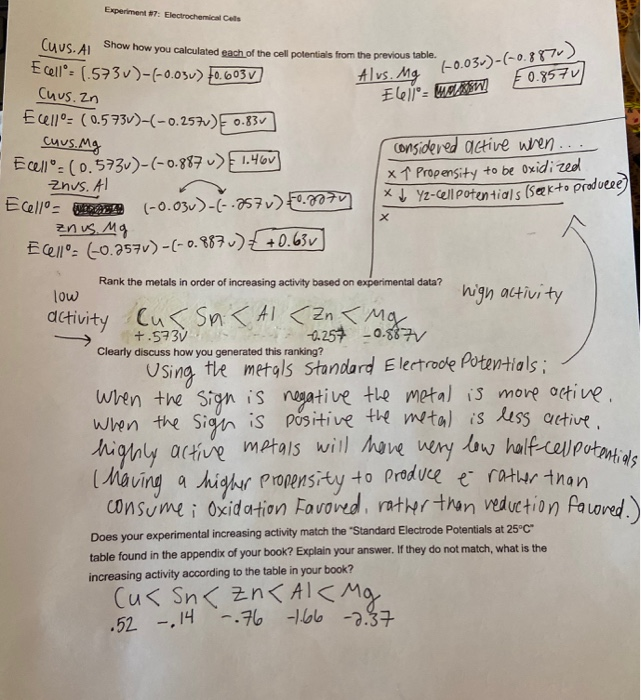 Experiment #7: Electrochemical Cells
Show how you calculated each of the cell potentials from the previous table.
Cu vs. Al
Ecell° = (.573v)-(-0.03v) = 0.603v
Cu vs. Zn
Ecell° = (0.573v)-(-0.257v) = 0.83v
Cu vs. Mg
Ecell° = (0.573v)-(-0.887v) = 1.46v
Zn vs. Al
Ecell° = (-0.03v)-(-.257v) = 0.227v
Zn vs. Mg
Ecell° = (-0.257v)-(-0.887v) = +0.63v
Al vs. Mg (-0.03v)-(-0.887v)
Ecell° = = 0.857v
considered active when ...
x ↑ Propensity to be oxidized
x ↓ 1/2-cell potentials (seek to produce e)
x
Rank the metals in order of increasing activity based on experimental data?
low activity → Cu < Sn < Al < Zn < Mg high activity
+.573V -0.257 -0.887V
Clearly discuss how you generated this ranking?
Using the metals Standard Electrode Potentials;
when the sign is negative the metal is more active.
when the sign is positive the metal is less active.
highly active metals will have very low half-cell potentials
(having a higher propensity to produce e⁻ rather than
consume; Oxidation Favored, rather than reduction favored.)
Does your experimental increasing activity match the "Standard Electrode Potentials at 25°C"
table found in the appendix of your book? Explain your answer. If they do not match, what is the
increasing activity according to the table in your book?
Cu < Sn < Zn < Al < Mg
.52 -.14 -.76 -1.66 -2.37